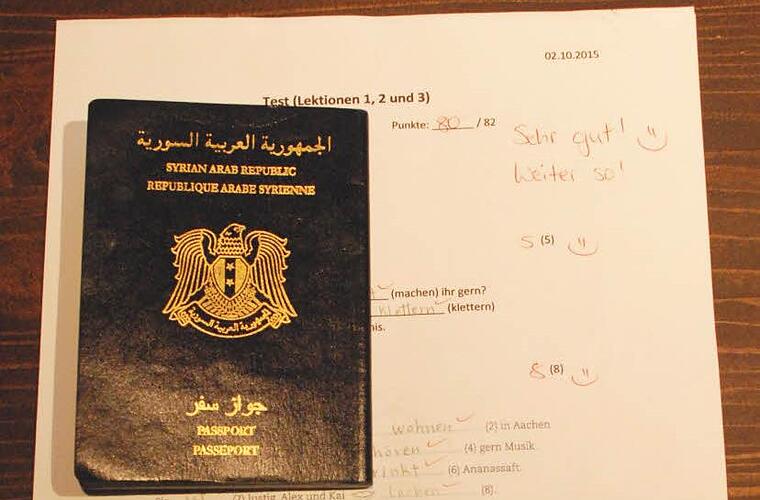 02.10.2015
Test (Lektionen 1, 2 und 3)
Punkte: 80 / 82
Sehr gut!
Weiter so!
الجمهورية العربية السورية
SYRIAN ARAB REPUBLIC
REPUBLIQUE ARABE SYRIENNE
5 (5)
(machen) ihr gern?
klettern (klettern)
nis.
الجمهورية العربية السورية
8 (8)
جواز سفر
PASSPORT
PASSEPORT
wohnen (2) in Aachen
hören (4) gern Musik.
rinkt (6) Ananassaft.
(7) lustig. Alex und Kai lachen (8).